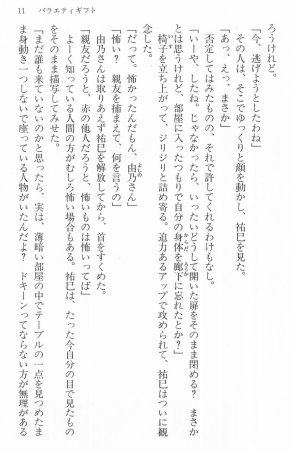 11　バラエティギフト
ろうけれど。
「今、逃げようとしたわね」
その人は、そこでゆっくりと顔を動かし、祐巳を見た。
「あっ、えっ、まさか」
否定してはみたものの、それで許してくれるわけもなし。
「いーや、したね。じゃなかったら、いったいどうして開いた扉をそのまま閉める？　まさか
とは思うけれど、部屋に入ったつもりで自分の身体を廊下に忘れたとか？」
椅子を立ち上がって、ジリジリと詰め寄る。迫力あるアップで攻められて、祐巳はついに観
念した。
「だって。怖かったんだもん、由乃さん」
「怖い？　親友を捕まえて、何を言うの」
由乃さんは取りあえず祐巳を解放してから、首をすくめた。
「親友だろうと、赤の他人だろうと、怖いものは怖いってば」
よーく知っている人間の方がむしろ怖い場合もある。祐巳は、たった今自分の目で見たもの
をそのまま描写してみせた。
「まだ誰も来ていないのかと思ったら、実は、薄暗い部屋の中でテーブルの一点を見つめたま
ま身動き一つしないで座っている人物がいたんだよ？　ドキーンってならない方が無理がある